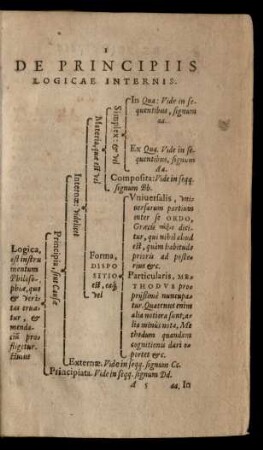 1
DE PRINCIPIIS
LOGICAE INTERNIS.
Logica,
est instru
mentum
Philoso-
phiæ, quo
& veritas
eruatur, &
mendaciũ
profligetur.
Principia, sive Causæ
Internæ: videlicet
Materia, quæ est vel
Simplex: & vel
In Qua: Vide in se-
quentibus, signum
aa.
Ex Qua. Vide in se-
quentibus, signum
Composita: Vide in seqq.
signum Bb.
Forma,
DISPO
SITIO
est, vel
Vniuersalis, 
inter se ORDO,
Græcè dici-
tur, qui nihil aliud
est, quàm habitudo
prioris ad poste-
rius &c.
Particularis, ME-
THODVS pro-
priissimè nuncupa-
tur. Quatenus enim
alia notiora sunt, a-
lia minùs nota, Me-
thodum quandam
cognitionis dari o-
portet &c.
Externæ. Vide in seqq. signum Cc.
Principiata. Vide in seqq. signum Dd.
A 5
aa. In